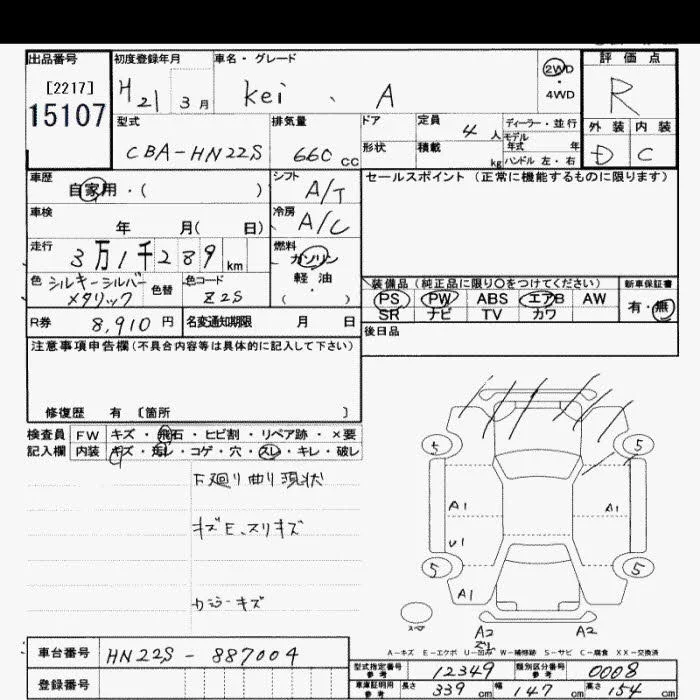 出品番号
[2217]
15107
初度登録年月
H 21 3月
車名・グレード
Kei 、 A
2WD
・
4WD
評価点
R
外装 内装
D C
型式
CBA-HN22S
排気量
660 CC
ドア
形状
定員
4人
積載
kg
ディーラー・並行
モデル
年式 年
ハンドル 左・右
車歴
自家用・( )
シフト
A/T
セールスポイント（正常に機能するものに限ります）
車検
年 月( 日)
冷房
A/C
走行
3万1千289km
燃料
ガソリン
軽・油
( ・ )
色
シルキーシルバー
メタリック
色替
色コード
Z2S
装備品（純正品に限り○をつけてください）
PS PW ABS エアB AW
SR ナビ TV カワ
新車保証書
有・無
R券 8,910円
名変通知期限 月 日
後日品
注意事項申告欄(不具合内容等は具体的に記入して下さい)
修復歴 有 〔箇所 〕
検査員
記入欄
FW キズ・飛石・ヒビ割・リペア跡・×要
内装 キズ・汚レ・コゲ・穴・スレ・キレ・破レ
下廻り曲り現状
キズE、スリキズ
カジーキズ
5 5
A1 A1
U1
5 5
A1
スペア
A2 A2
A-キズ E-エクボ U-凹み W-補修跡 S-サビ C-腐食 XX-交換済
車台番号 HN22S-887004
登録番号
型式指定番号
参考
12349
類別区分番号
参考
0008
車庫証明用
参考
長さ 339 cm 幅 147 cm 高さ 154 cm